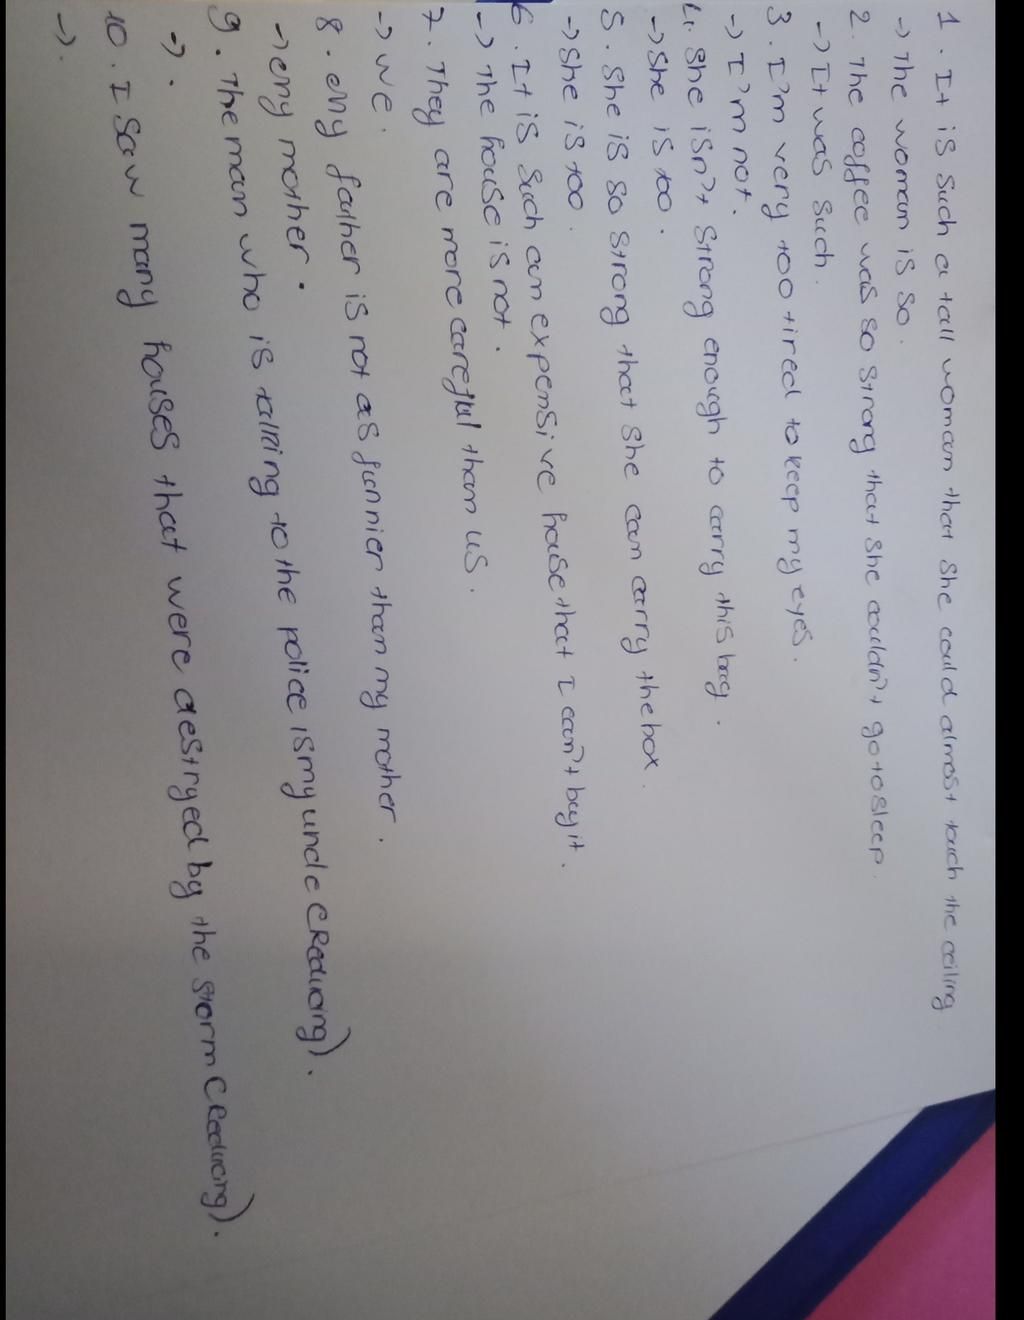 1. It is such a tall woman that she could almost touch the ceiling
→ The woman is so.
2. The coffee was so strong that she couldn't go to sleep.
→ It was such.
3. I'm very too tired to keep my eyes.
→ I'm not.
4. She isn't strong enough to carry this bag.
→ She is too.
5. She is so strong that she can carry the box.
→ She is too.
6. It is such an expensive house that I can't buy it.
→ The house is not.
7. They are more careful than us.
→ We.
8. emy father is not as funnier than my mother.
→ emy mother.
9. The man who is talking to the police is my uncle (Reducing).
→.
10. I saw many houses that were destryed by the storm (Reducing).
→.